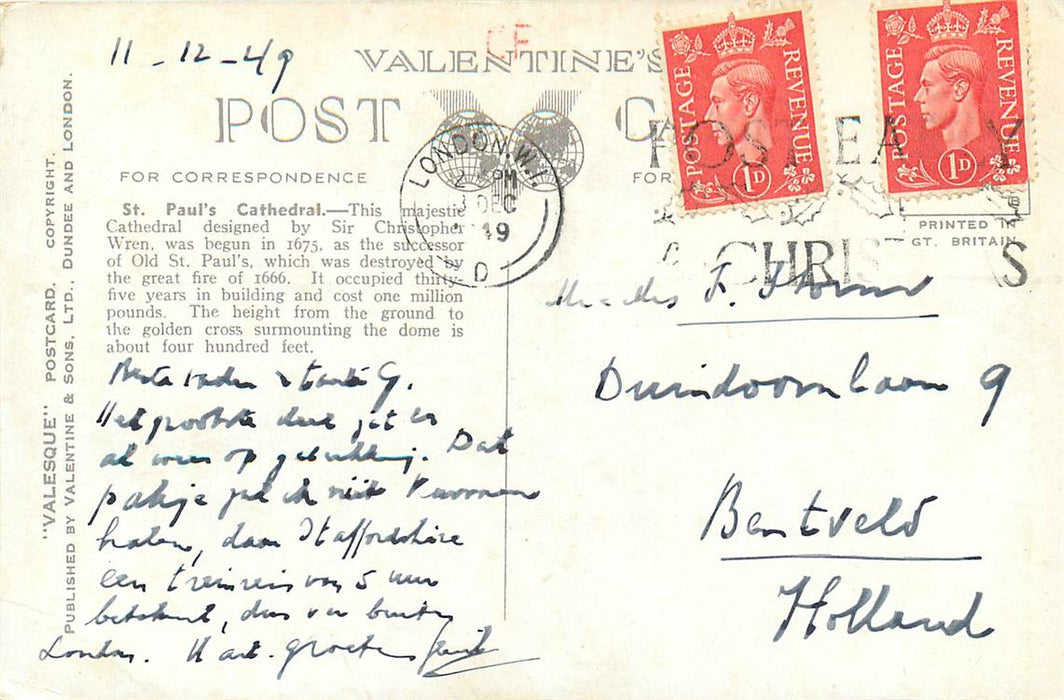 11-12-49
LE
VALENTINE'S
POST C
FOR CORRESPONDENCE
FOR
St. Paul's Cathedral.—This majestic
Cathedral designed by Sir Christopher
Wren, was begun in 1675, as the successor
of Old St. Paul's, which was destroyed by
the great fire of 1666. It occupied thirty-
five years in building and cost one million
pounds. The height from the ground to
the golden cross surmounting the dome is
about four hundred feet.
"VALESQUE" POSTCARD. COPYRIGHT.
PUBLISHED BY VALENTINE & SONS, LTD., DUNDEE AND LONDON.
LONDON. W.1.
PM
DEC
49
D
POSTAGE REVENUE
1D
POSTAGE REVENUE
1D
POST EA Y
CHRIS S
PRINTED IN
GT. BRITAIN
Beste vader
Het grootste deel zit er
al weer op gelukkig. Dat
pakje zal ik niet kunnen
halen, daar Staffordshire
een treinreis van 5 uur
betekent, dus ver buiten
London. Hart. groeten
F.
Duindoornlaan 9
Bentveld
Holland